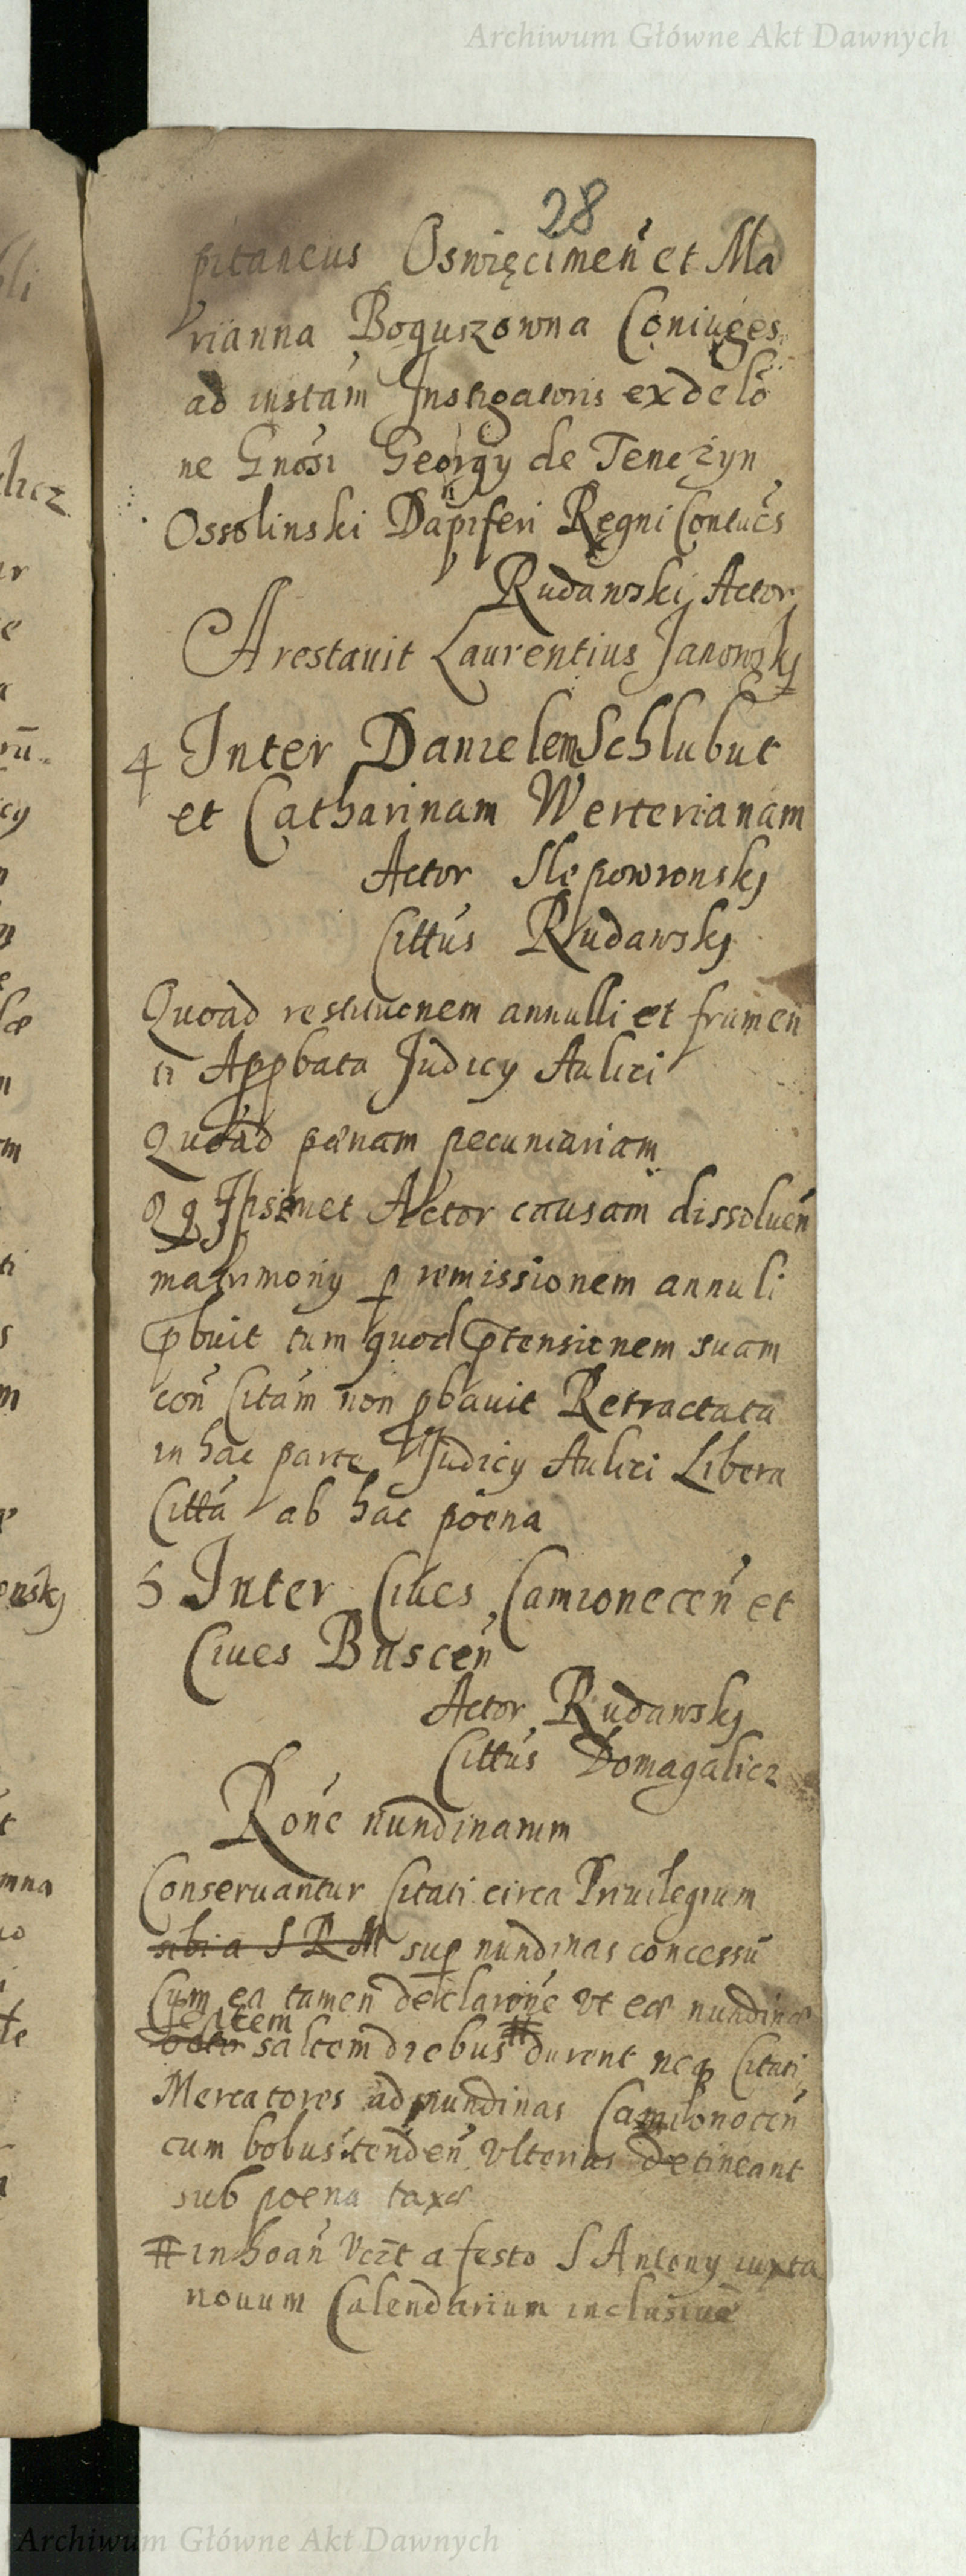 Archiwum Główne Akt Dawnych
28
pitaneus Oswięcimen̄ et Ma
rianna Boguszowna Coniuges
ad instām Instigatoris ex delō
ne Gnōsi Georgy de Tenczyn
Ossolinski Dapiferi Regni
Rudawski Actor
Arestauit Laurentius Janowskj
4 Inter Danielem Schlubut
et Catharinam Werterianam
Actor Slepowronskj
Cittūs Rudawskj
Quoad restitucnem annulli et frumen
ti Appbata Judicy Aulici
Quoad pænam pecuniariam
Qq Ipsemet Actor causam dissoluēn
matrimony p remissionem annuli
pbuit tum quod ptensionem suam
con̄ Citām non pbauit Retractata
in hac parte Judicy Aulici Libera
Cittā ab hac poena
5 Inter Ciues Camionecen̄ et
Ciues Buscen̄
Actor Rudawskj
Cittūs Domagalicz
Rōne nundinarum
Conseruantur Citati circa Priuilegium
sibi a S R M sup nundinas concessū
Cum ea tamen declarōne vt eæ nundinæ
septem
saltem diebus # durent neq Citati
Mercatores ad nundinas Camionocen̄
cum bobus tenden̄ vlterius detineant
sub poena taxæ
# in hoan̄ a festo S Antony iuxta
nouum Calendarium inclusiuē
Archiwum Główne Akt Dawnych